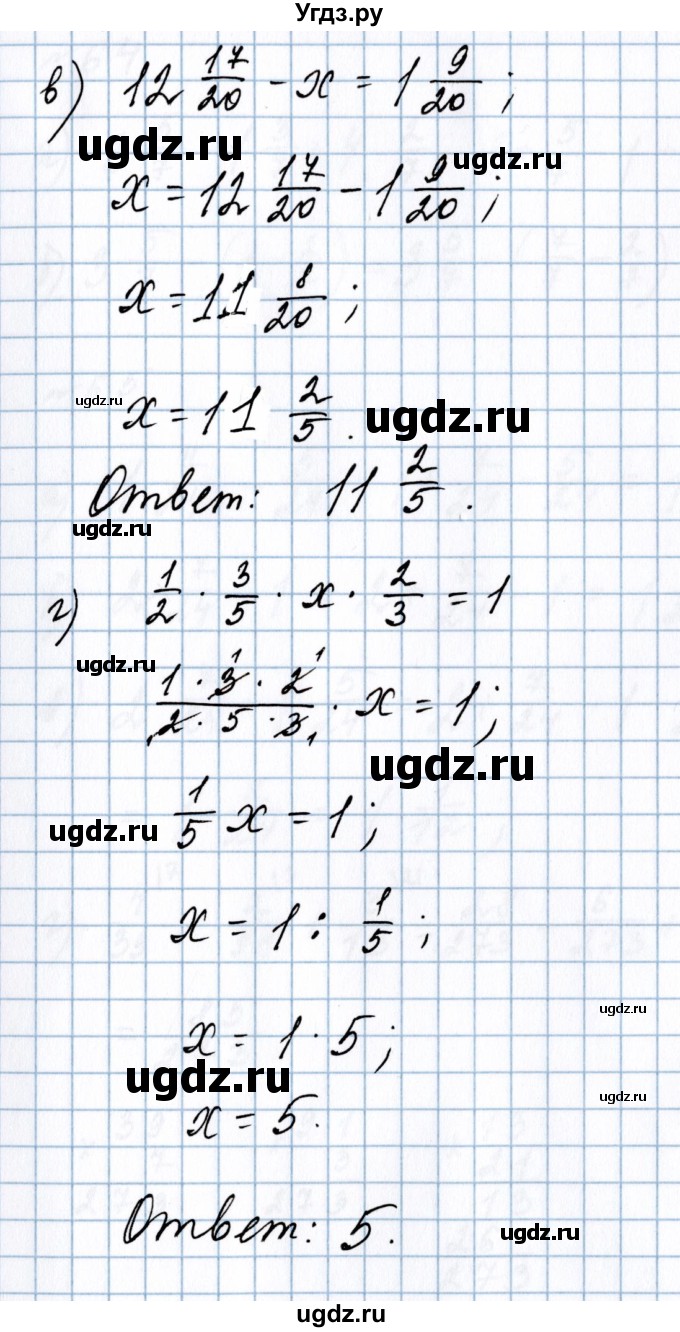 Угдз.ру
в) 12 17/20 - x = 1 9/20 ;
ugdz.ru
ugdz.ru
x = 12 17/20 - 1 9/20 ;
x = 11 8/20 ;
ugdz.ru
x = 11 2/5 .
ugdz.ru
Ответ: 11 2/5 .
ugdz.ru
г) 1/2 · 3/5 · x · 2/3 = 1
ugdz.ru
1 · 3 1 · 2 1 / 1 2 · 5 · 3 1 · x = 1 ;
ugdz.ru
1/5 x = 1 ;
ugdz.ru
x = 1 : 1/5 ;
ugdz.ru
x = 1 · 5 ;
ugdz.ru
ugdz.ru
x = 5 .
Ответ: 5 .
ugdz.ru
ugdz.ru